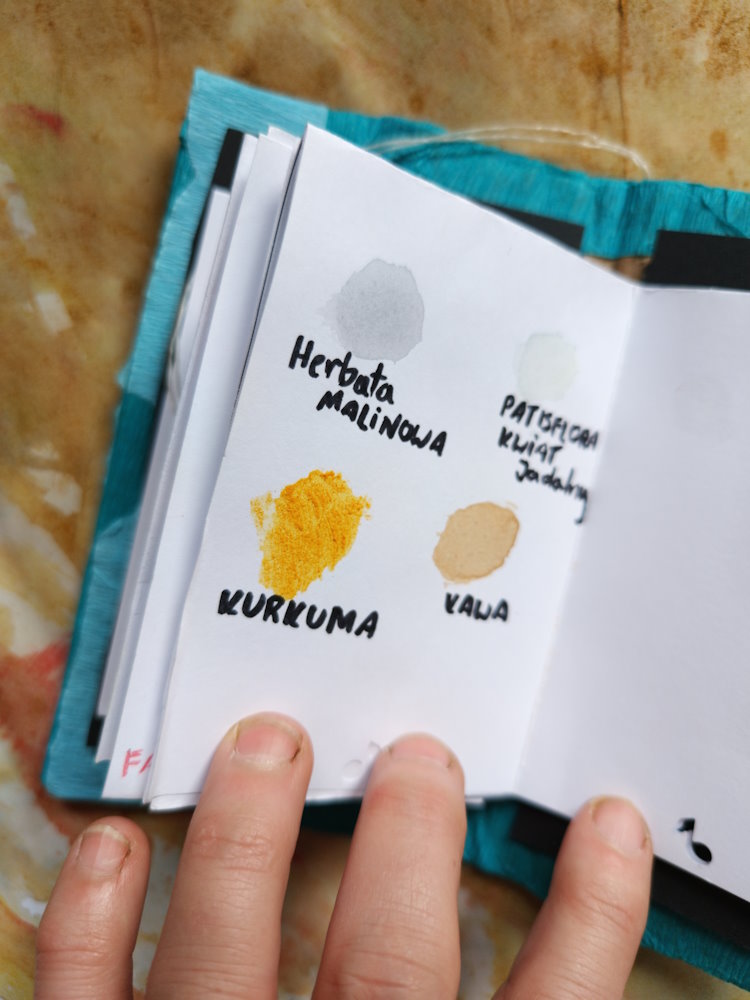 Herbata
MALINOWA
KWIAT
Jadalny
KURKUMA
KAWA
FA